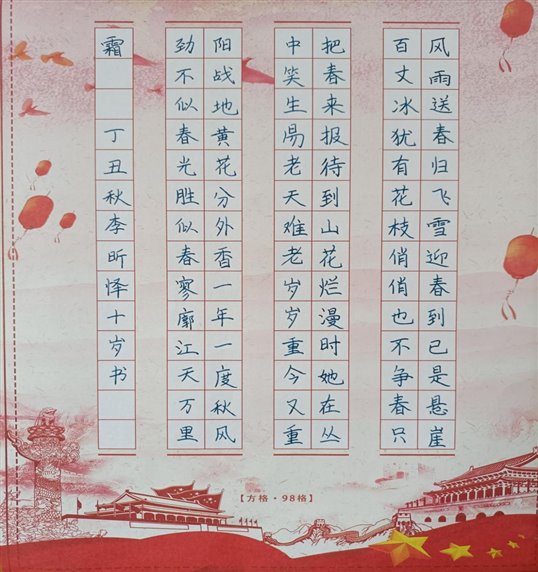 风雨送春归飞雪迎春到已是悬崖
百丈冰犹有花枝俏俏也不争春只
把春来报待到山花烂漫时她在丛
中笑生易老天难老岁岁重今又重
阳战地黄花分外香一年一度秋风
劲不似春光胜似春寥廓江天万里
霜 丁丑秋李昕怿十岁书
【方格·98格】